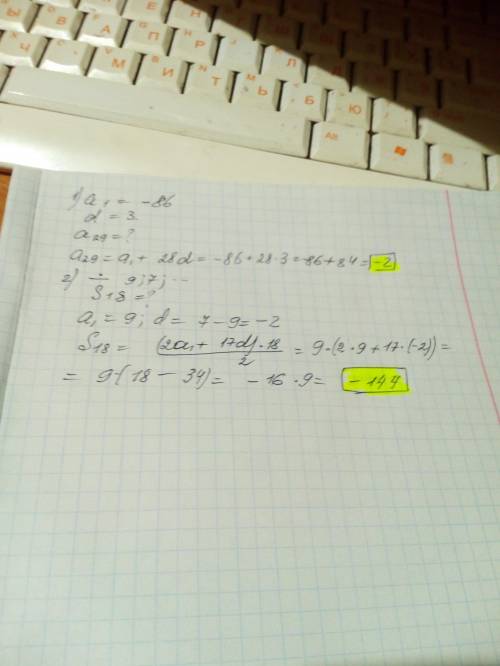 Ы В А П Р О Л
Ч С М И Т Ь Б Ю
Alt
1) a₁ = -86
d = 3.
a₂₉ = ?
a₂₉ = a₁ + 28d = -86 + 28·3 = -86 + 84 = -2
2) ÷ 9; 7; ...
S₁₈ = ?
a₁ = 9; d = 7 - 9 = -2
S₁₈ = (2a₁ + 17d)·18 / 2 = 9·(2·9 + 17·(-2)) =
= 9·(18 - 34) = -16·9 = -144